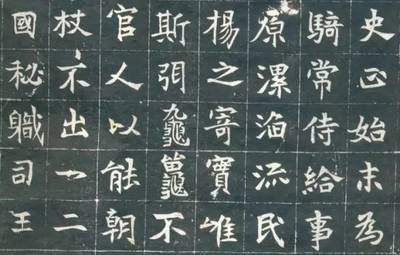 史正始末為
騎常侍給事
原漯流民
楊之寄寶唯
斯弭不
官人以能朝
杖不出一二
國秘軄司王